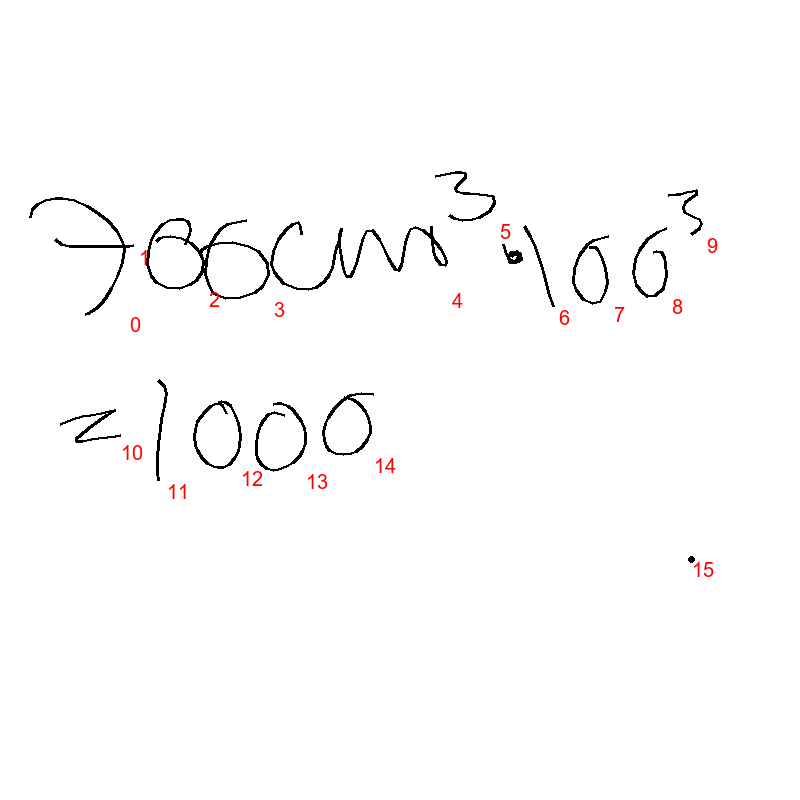 786cm³·100³
=1000
0 1 2 3 4 5 6 7 8 9
10 11 12 13 14
15